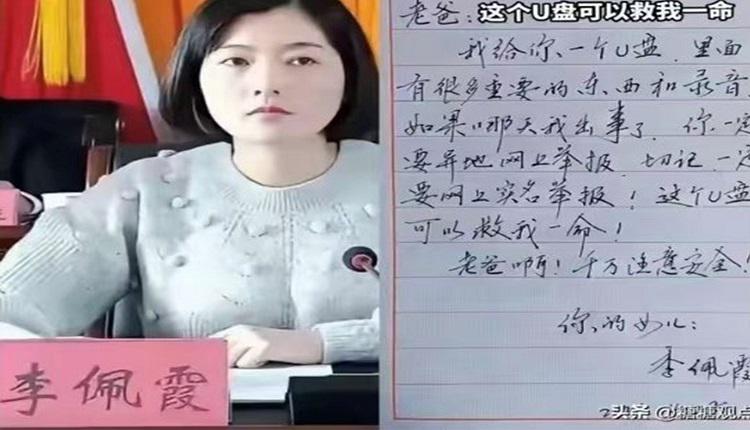 李佩霞
老爸：这个U盘可以救我一命
我给你一个U盘，里面
有很多重要的东西和录音
如果哪天我出事了，你一定
要异地网上举报，切记，一定
要网上实名举报！这个U盘
可以救我一命！
老爸啊！千万注意安全！
你的女儿：
李佩霞
头条 @糖糖观点